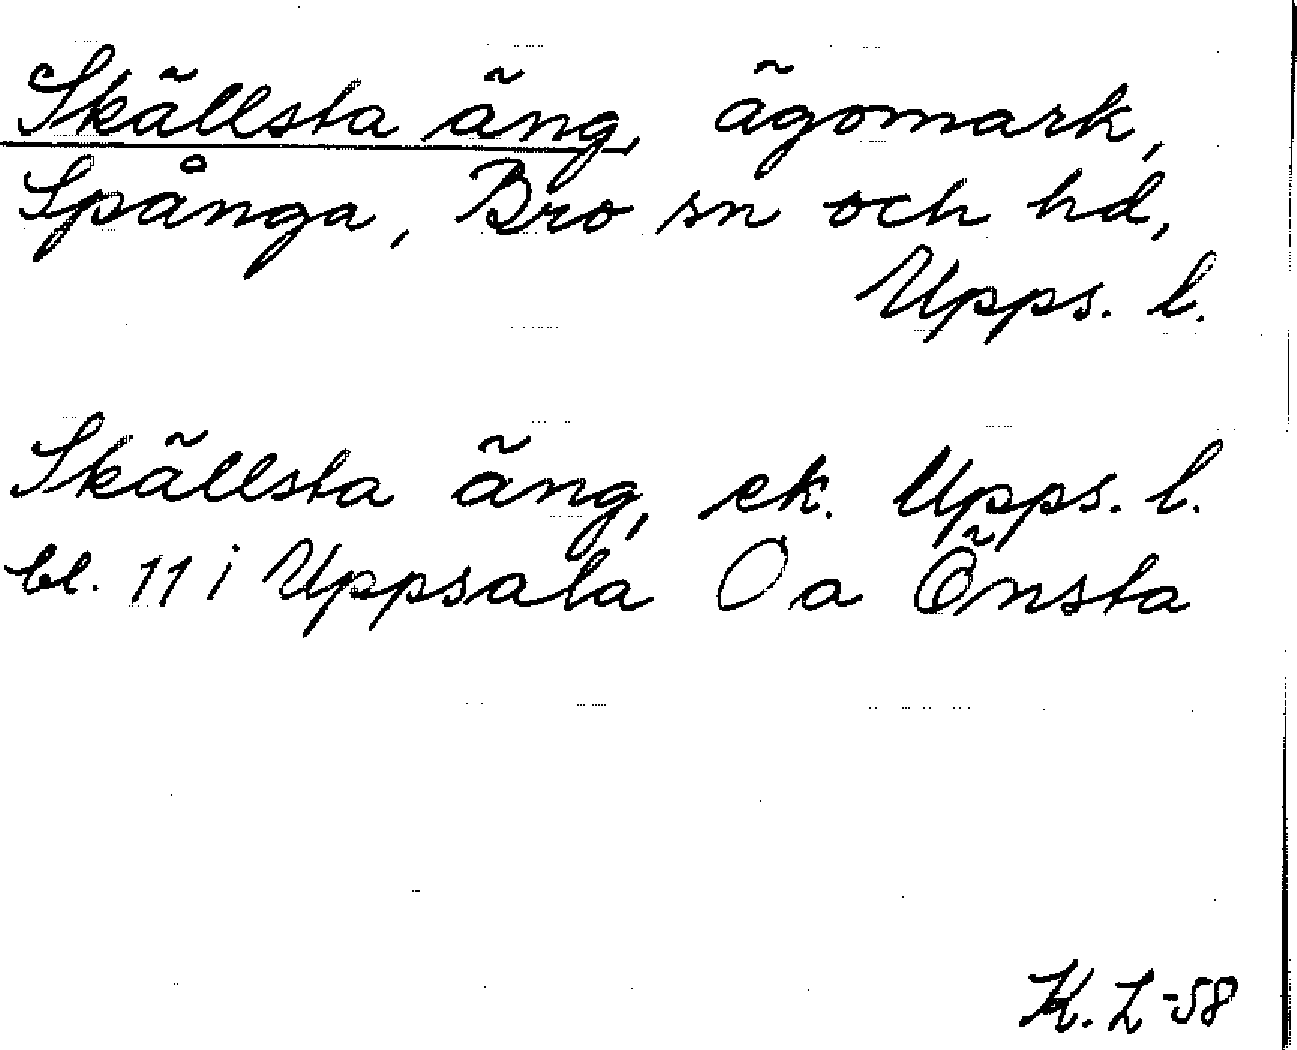 Skällsta äng, ägomark,
Spånga, Bro sn och hd,
Upps. l.
Skällsta äng, ek. Upps. l.
bl. 11 i Uppsala Oa Önsta
K. L-58